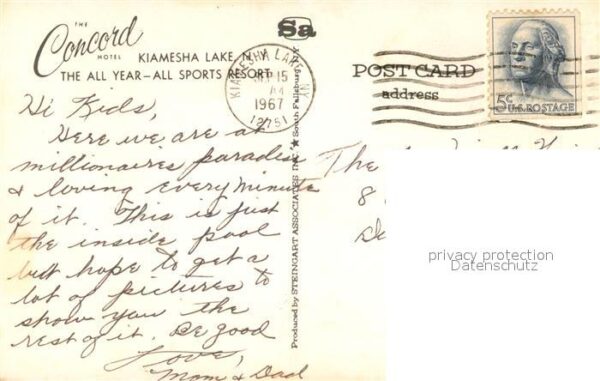 THE
Concord
HOTEL
KIAMESHA LAKE, N.Y.
THE ALL YEAR—ALL SPORTS RESORT
Sa
KIAMESHA LAKE N.Y.
SEP 15
AM
1967
12751
POST CARD
address
5c
U.S. POSTAGE
Hi Kids,
Here we are at
millionaires paradise
& loving every minute
of it. This is just
the inside pool
but hope to get a
lot of pictures to
show you the
rest of it. Be good
Love,
Mom & Dad
Produced by STEINGART ASSOCIATES INC. ★ South Fallsburg, N.Y.
The
8
privacy protection
Datenschutz